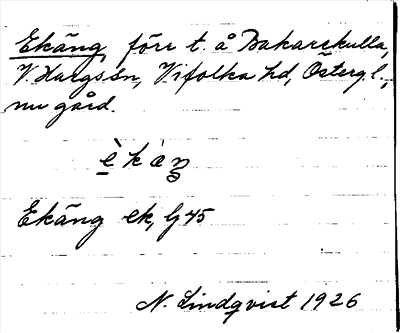 Ekäng, förr t. å Bakarekulla,
V. Hargs sn, Vifolka hd, Östergl.,
nu gård.
èkàŋ
Ekäng ek, G 45
N. Lindqvist 1926